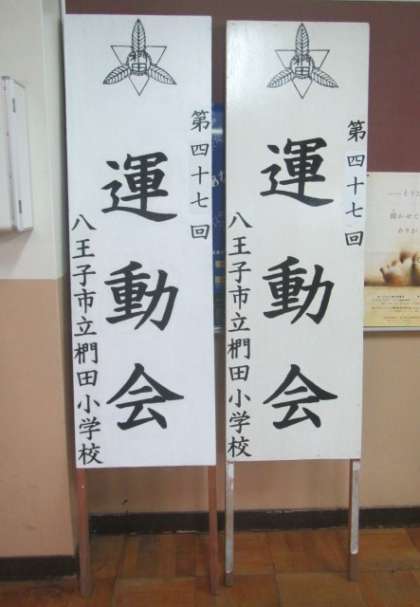 第四十七回
運動会
八王子市立椚田小学校
第四十七回
運動会
八王子市立椚田小学校